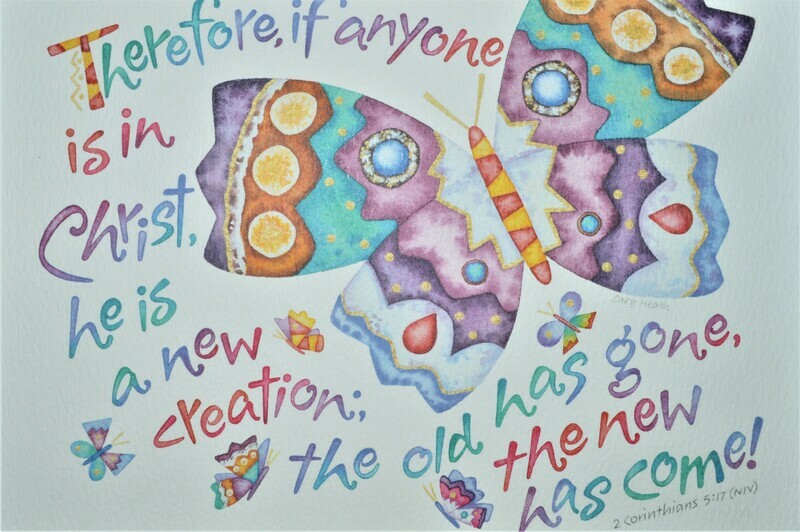 Therefore, if anyone
is in
Christ,
he is
a new
creation;
the old has gone,
the new
has come!
2 Corinthians 5:17 (NIV)
Cary Heath